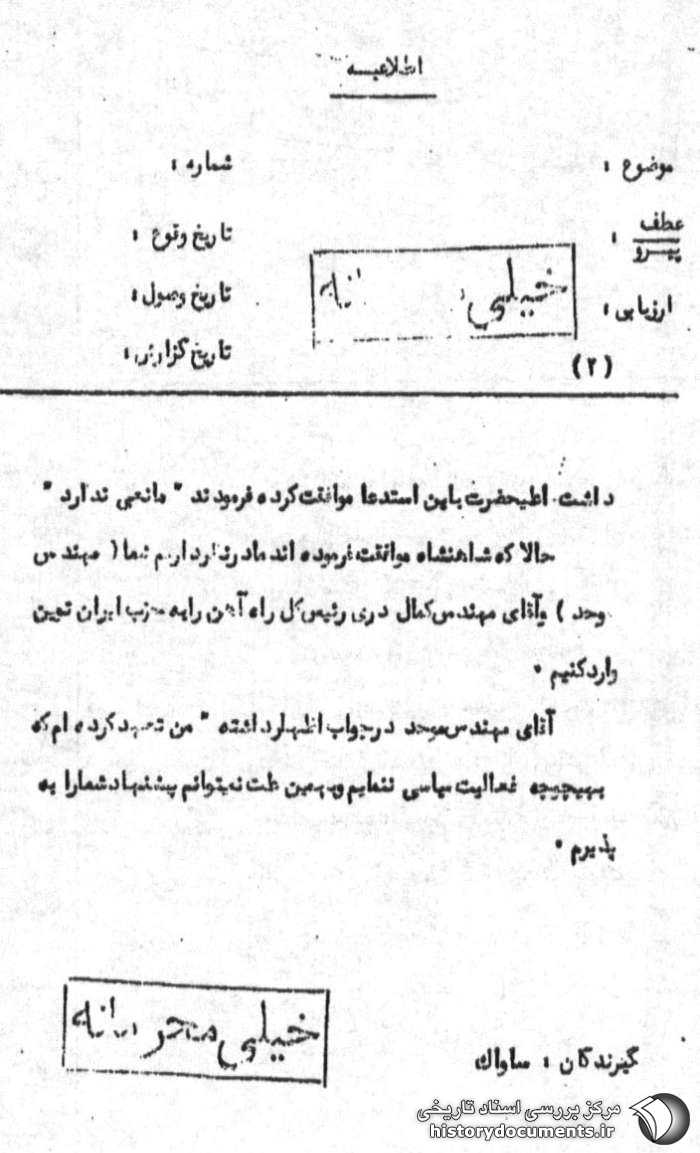 اطلاعیـــه
موضوع :
شماره :
عطف
پیرو :
تاریخ وقوع :
ارزیابی :
تاریخ وصول :
تاریخ گزارش :
خیلی
(۲)
داشت اعلیحضرت باین استدعا موافقت کرده فرمودند " مانعی ندارد "
حالا که شاهنشاه موافقت فرموده اند ما در نظر داریم شما ( مهندس
موحد ) وآقای مهندس کمال دری رئیس کل راه آهن رابه حزب ایران نوین
وارد کنیم .
آقای مهندس موحد درجواب اظهارداشته " من تعهد کرده ام که
بهیچوجه فعالیت سیاسی ننمایم وبهمین علت نمیتوانم پیشنهاد شمارا به
پذیرم "
خیلی محرمانه
گیرندگان : ساواک
مرکز بررسی اسناد تاریخی
historydocuments.ir